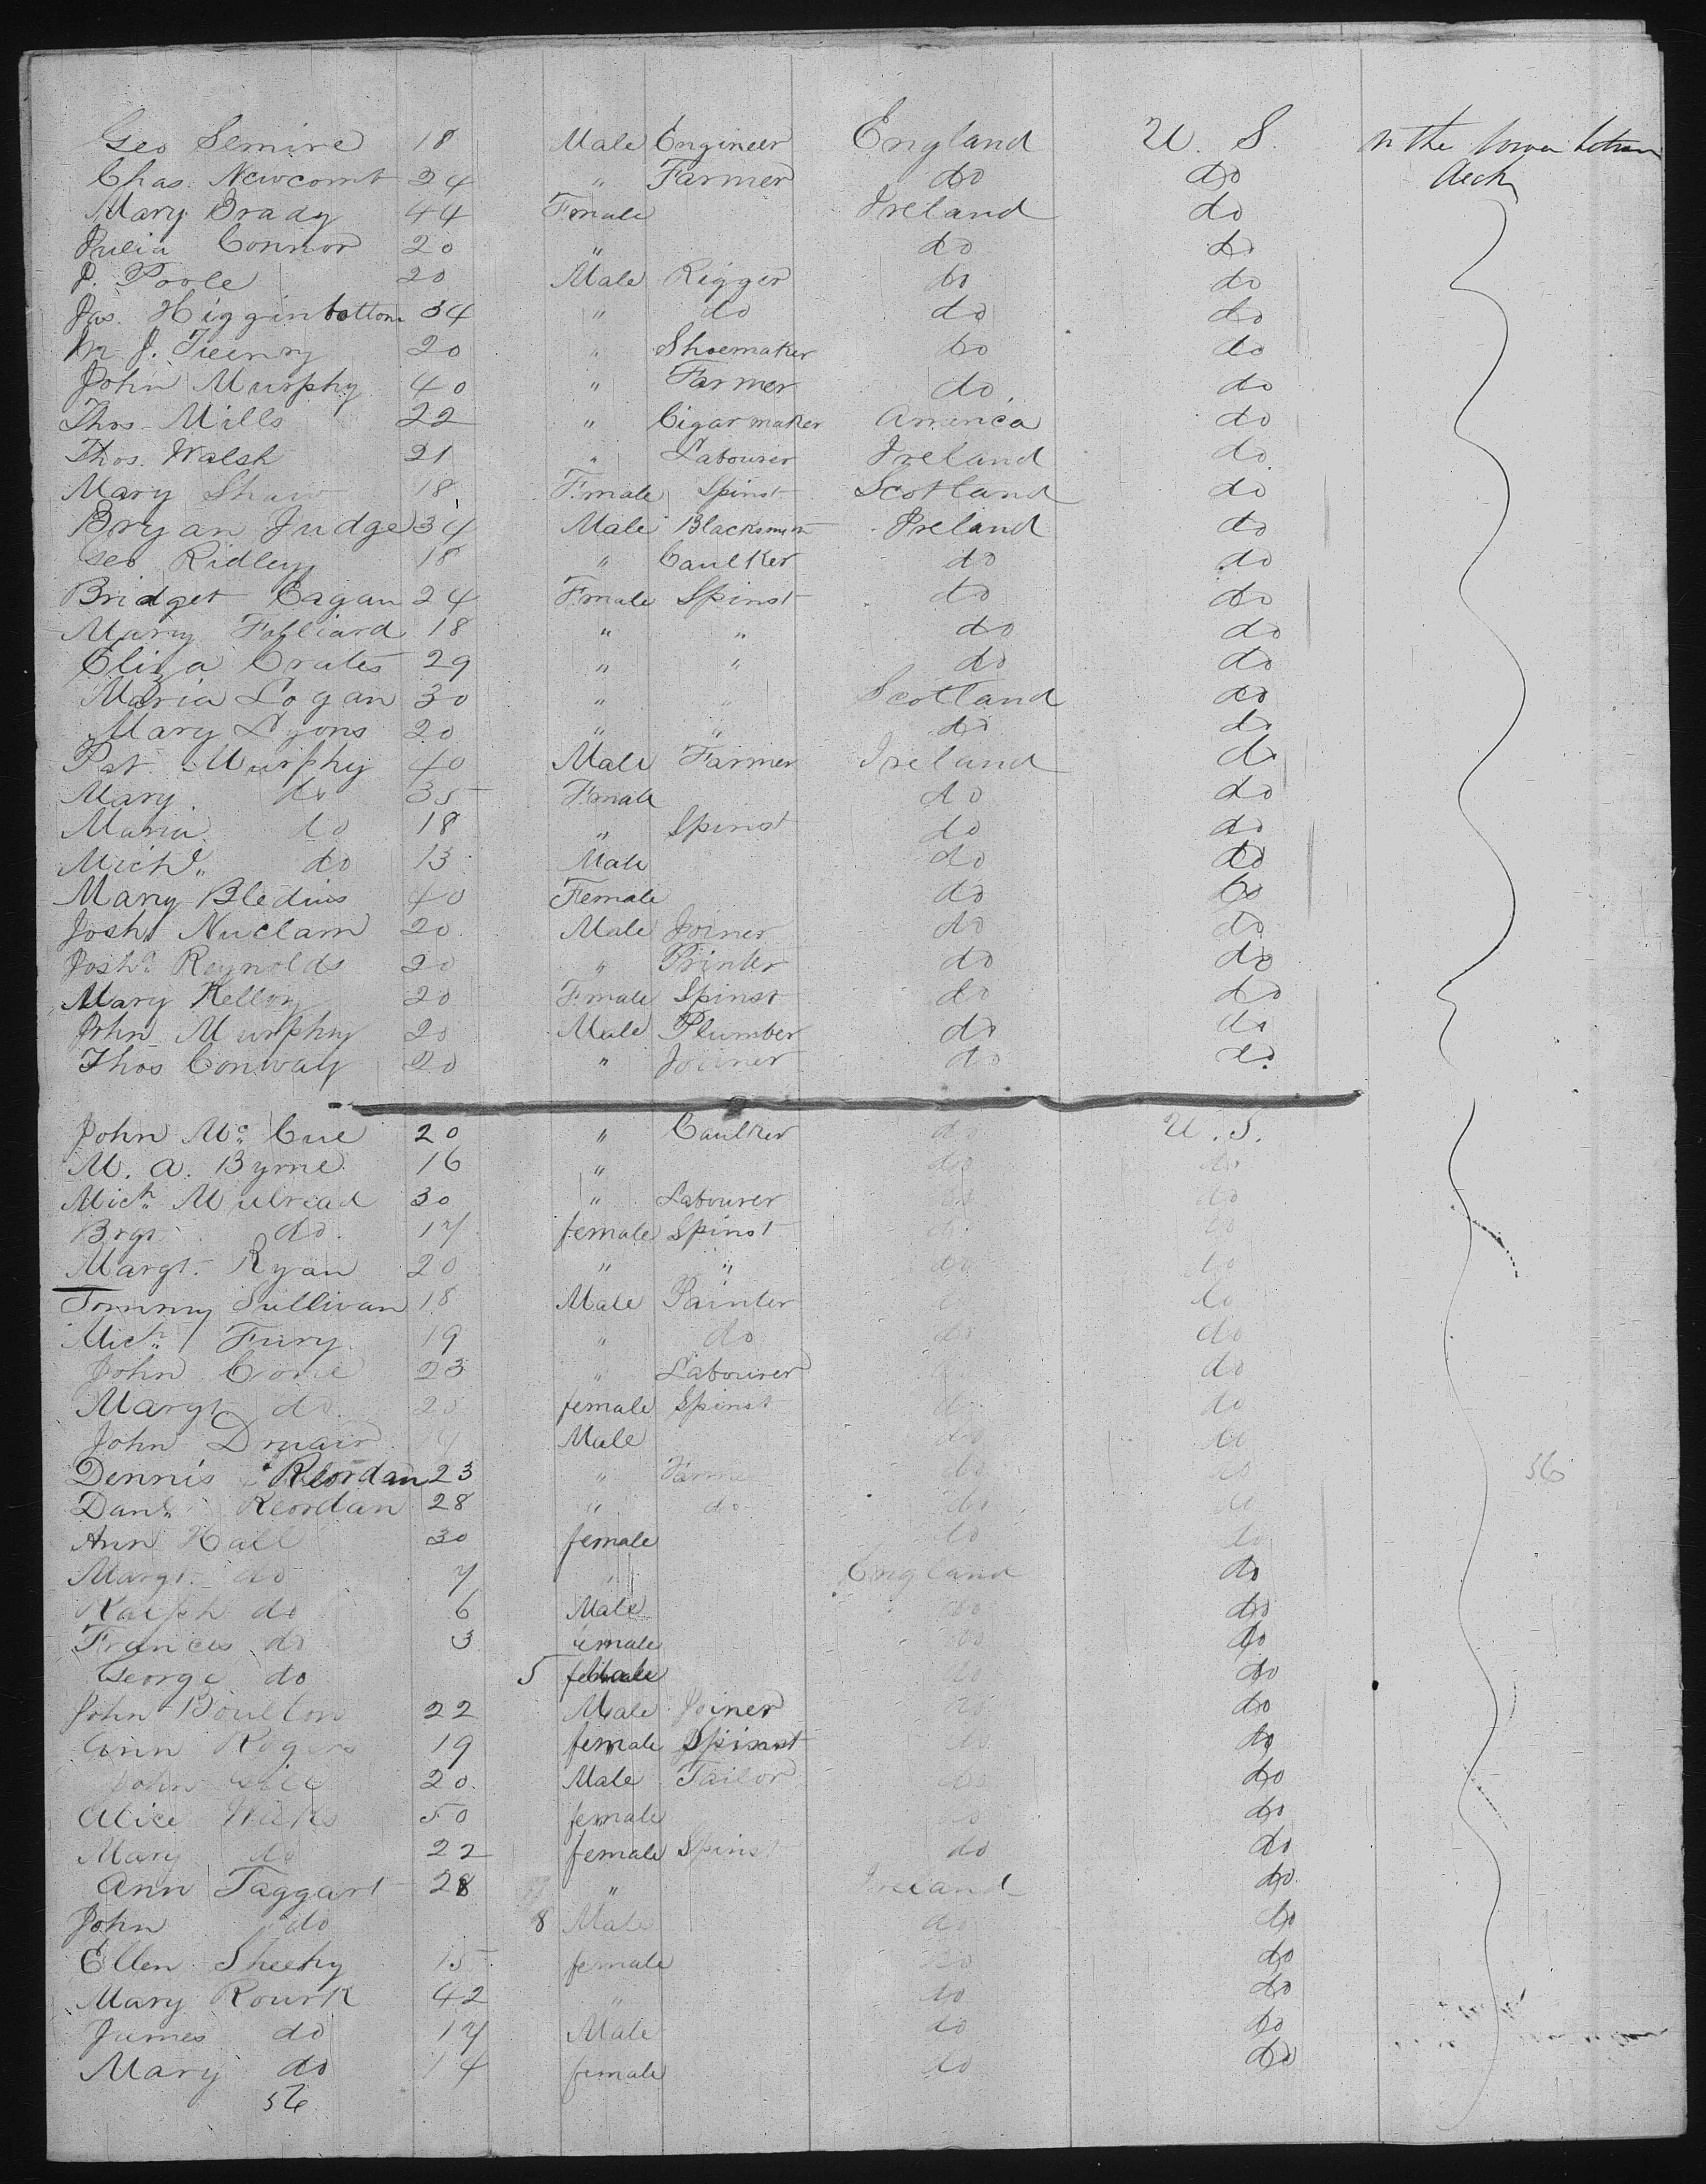 Geo Semire 18 Male Engineer England U. S. in the lower between
Chas. Newcomb 24 " Farmer do do deck
Mary Brady 44 Female Ireland do
Julia Connor 20 " do do
J. Poole 20 Male Rigger do do
Jas. Higginbottom 34 " do do do
J. 20 " Shoemaker do do
John Murphy 40 " Farmer do do
Thos Mills 22 " Cigar maker America do
Thos. Walsh 21 " Labourer Ireland do
Mary Shaw 18 Female Spinst Scotland do
Bryan Judge 34 Male Blacksmith Ireland do
Geo Ridley 18 " Caulker do do
Bridget Eagan 24 Female Spinst do do
Mary Folliard 18 " " do do
Eliza Crates 29 " " do do
Maria Logan 30 " " Scotland do
Mary Lyons 20 " " do do
Pat. Murphy 40 Male Farmer Ireland do
Mary do 35 Female do do
Maria do 18 " Spinst do do
Michl. do 13 Male do do
Mary Bledins 40 Female do do
Josh. Nuclam 20 Male Joiner do do
Josha. Reynolds 20 " Printer do do
Mary Kelloy 20 Female Spinst do do
John Murphy 20 Male Plumber do do
Thos Conway 20 " Joiner do do
John Mc Cue 20 " Caulker do U. S.
M. A. Byrne 16 " do do
Mich. Mulread 30 " Labourer do do
Brgt do. 17 female Spinst do do
Margt. Ryan 20 " " do do
Tommy Sullivan 18 Male Painter do do
Mich. Fury 19 " do do do
John Cone 23 " Labourer do do
Margt do 20 female Spinst do do
John Druair 14 Male do do
Dennis Reordan 23 " Farmer do do 56
Danl. Reordan 28 " do do do
Ann Hall 30 female do do
Margt. do 7 " England do
Ralph do 6 Male do do
Frances do 3 female do do
George do 5 Male do do
John Boulton 22 Male Joiner do do
Ann Rogers 19 female Spinst do do
John 20 Male Tailor do do
Alice Weeks 50 female do do
Mary do 22 female Spinst do do
Ann Taggart 28 " Ireland do
John do 8 Male do do
Ellen Sheehy 15 female do do
Mary Rourk 42 " do do
James do 17 Male do do
Mary do 14 female do do
56